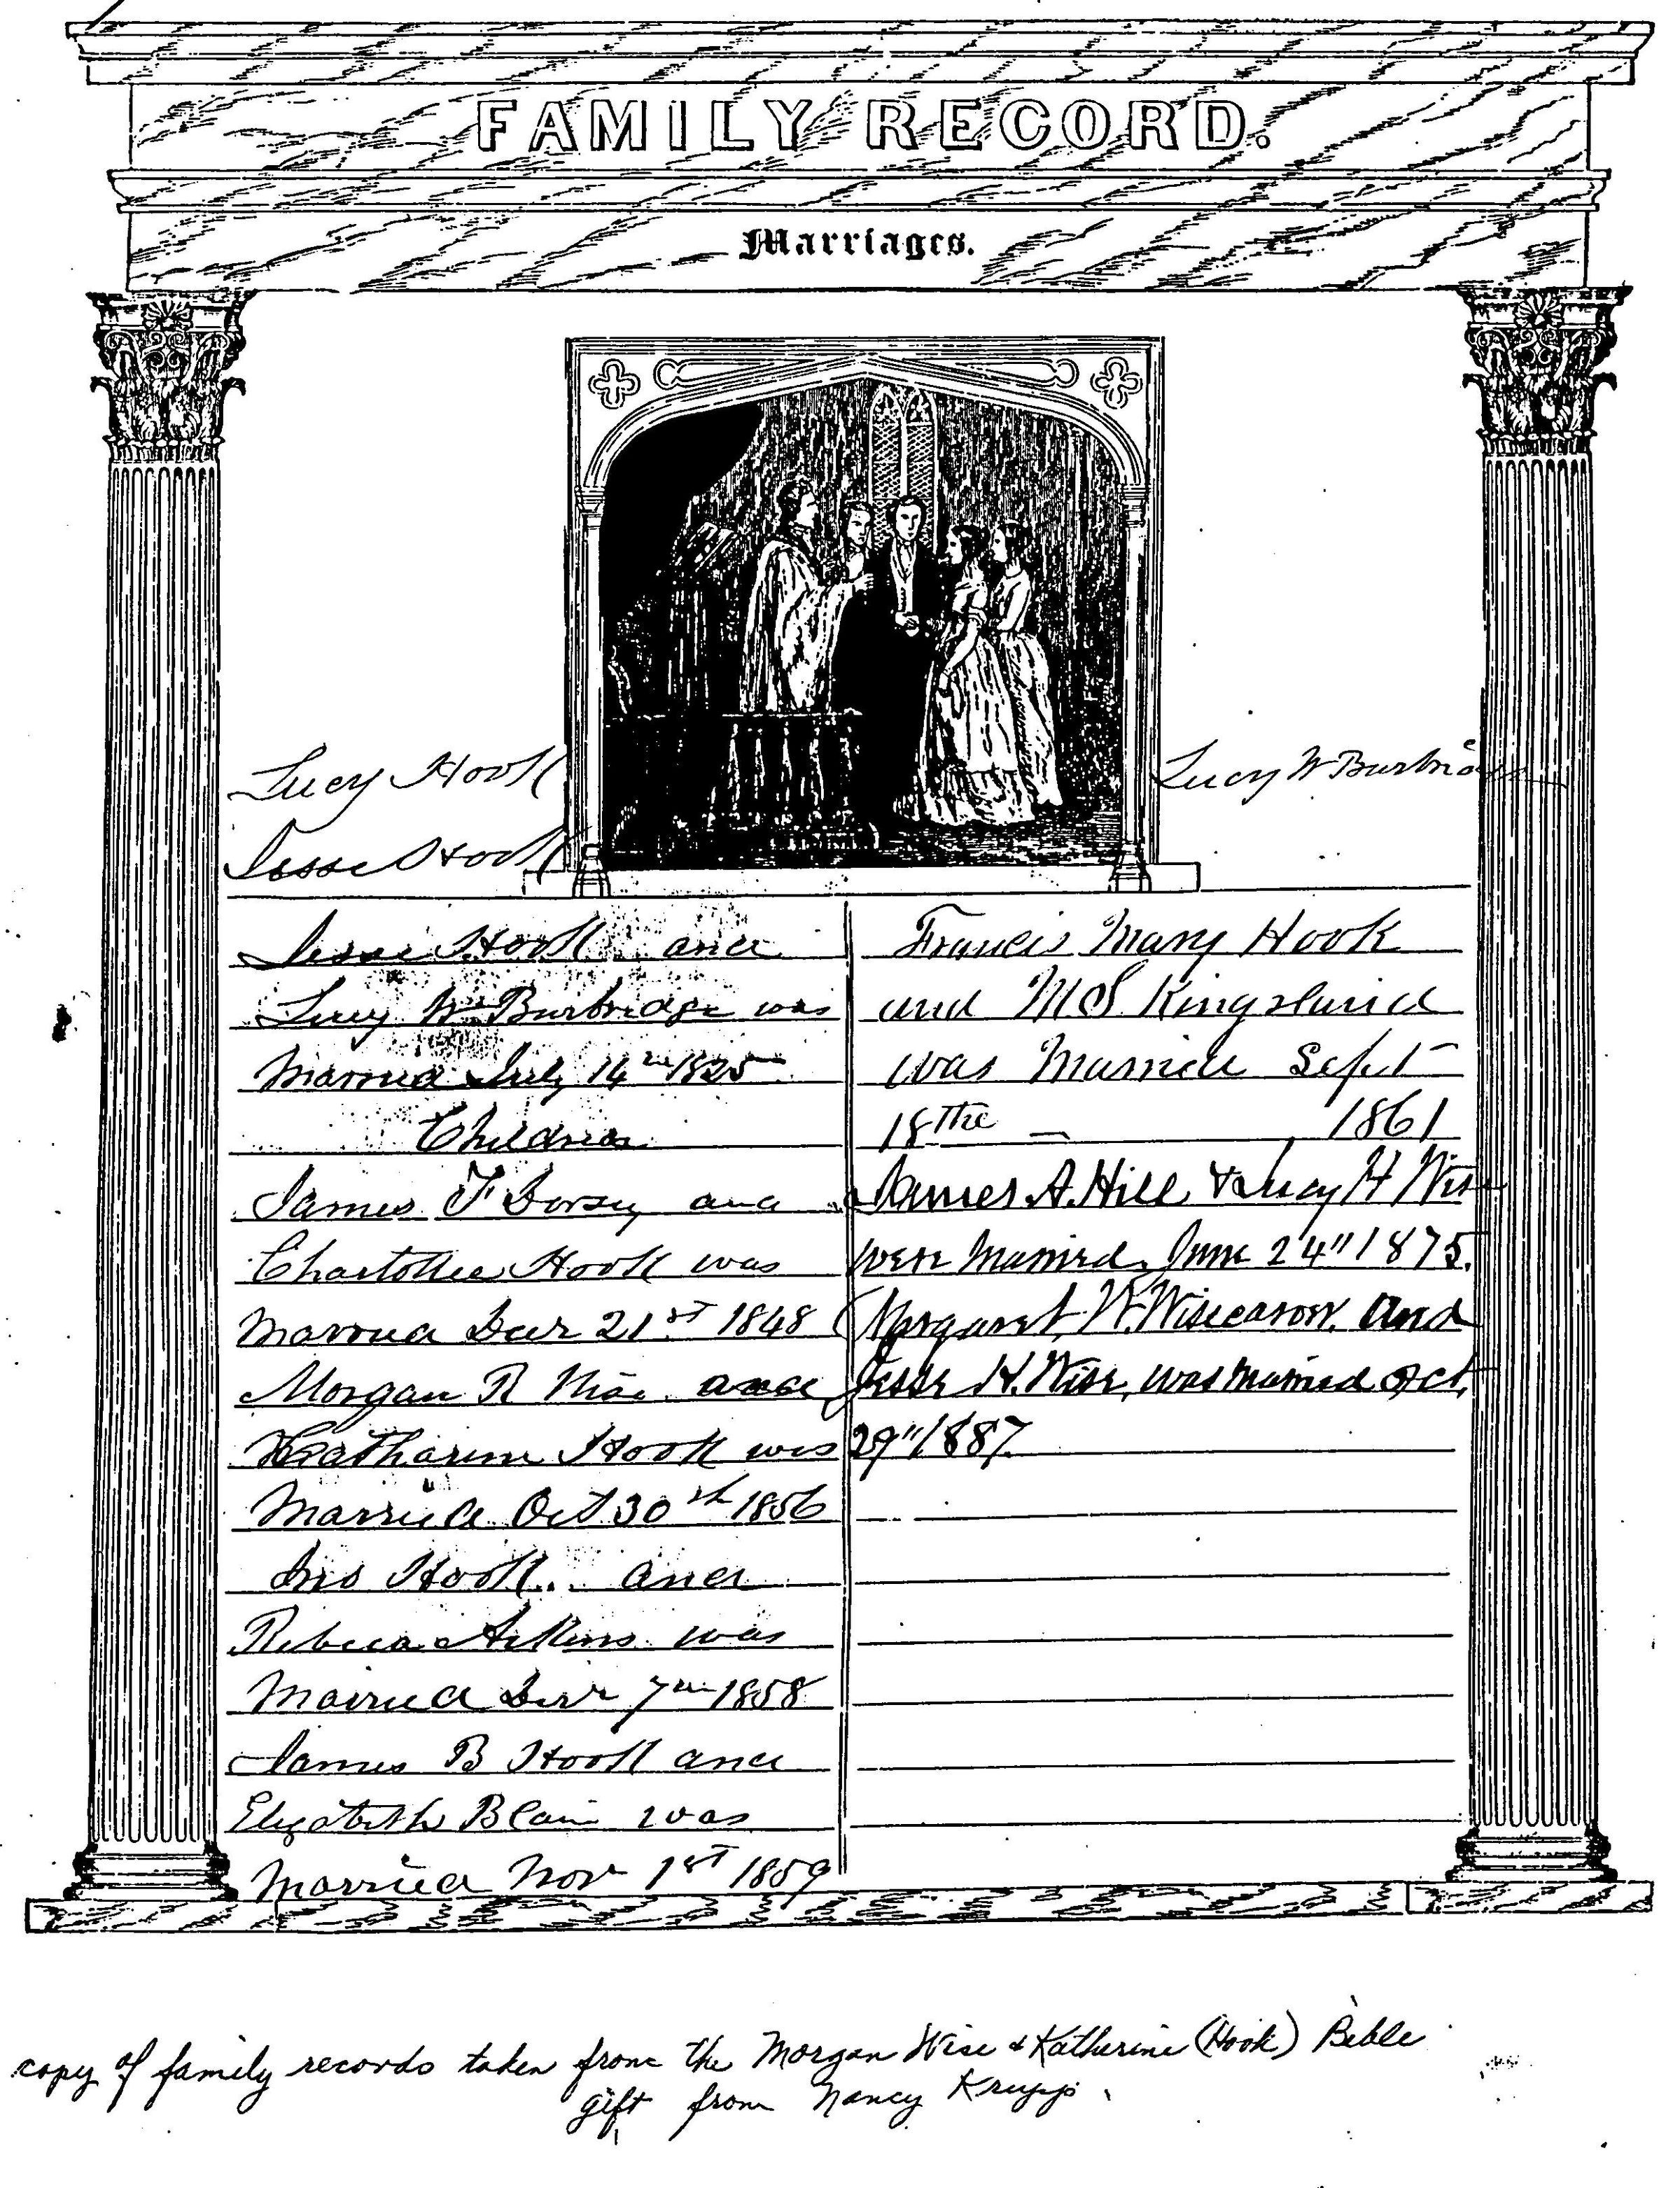 FAMILY RECORD.
Marriages.
Lucy Hook
Lucy W Burbridge
Jesse Hook
Jesse Hook and
Lucy W Burbridge was
Married July 14th 1825
Children
James F Dorsey and
Charlottee Hook was
Married Decr 21st 1848
Morgan R Wise and
Katharine Hook was
Married Oct 30th 1856
Jno Hook and
Rebeca Adkins was
Married 7th 1858
James B Hook and
Elizabeth Blair was
Married Nov 1st 1859
Francis Mary Hook
and M S Kingsland
was Married Sept
18the — 1861
James A. Hill & Lucy H Wise
were Married. June 24" 1875.
Margaret W. Wisecarver. and
Jesse H. Wise, was Married Oct.
29" 1887.
copy of family records taken from the Morgan Wise & Katherine (Hook) Bible
gift from Nancy Krupp.